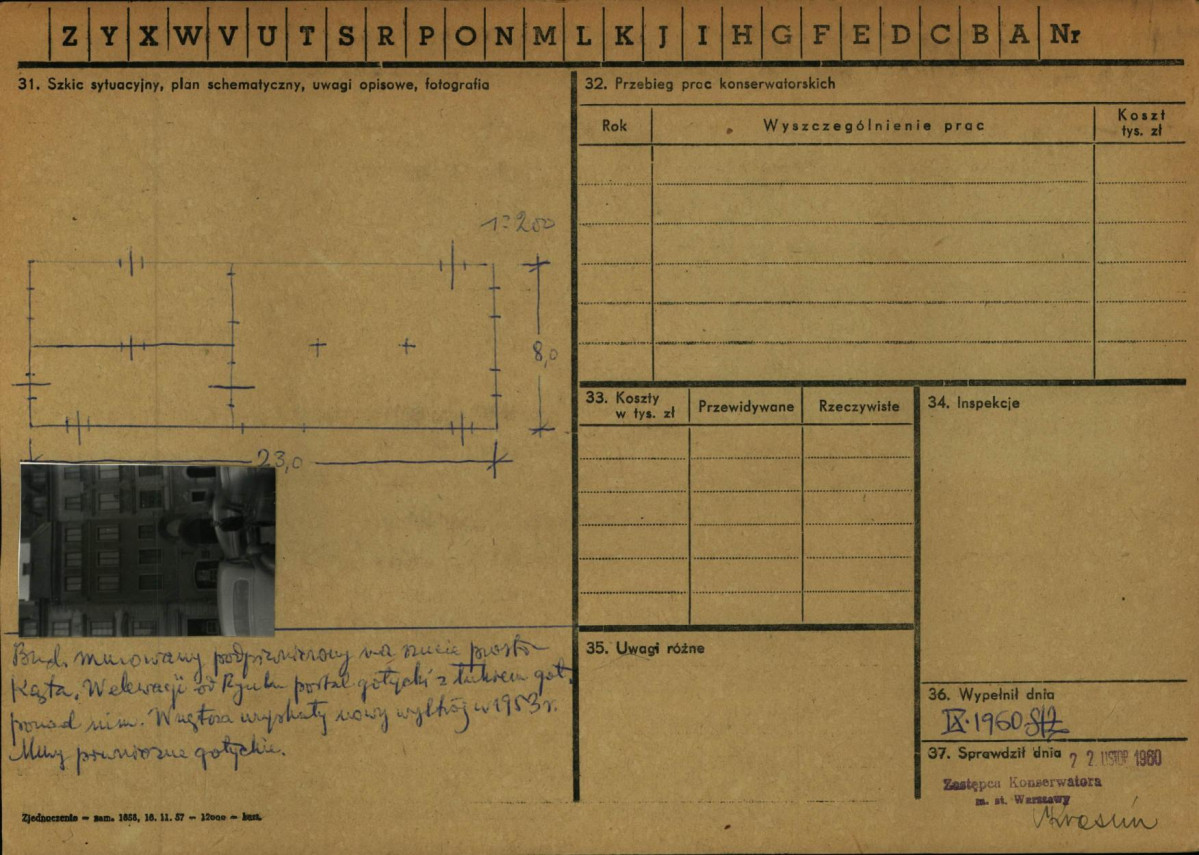 Z Y X W V U T S R P O N M L K J I H G F E D C B A Nr
31. Szkic sytuacyjny, plan schematyczny, uwagi opisowe, fotografia
1:200
8,0
23,0
Bud. murowany podpiwniczony na rzucie prosto-
kąta. W elewacji od Rynku portal gotycki z łukiem got.
ponad nim. Wnętrza uzyskały nowy wystrój w 1953 r.
Mury piwniczne gotyckie.
Zjednoczenie — zam. 1656, 16. 11. 57 — 12000 —
32. Przebieg prac konserwatorskich
Rok Wyszczególnienie prac Koszt
tys. zł
33. Koszty
w tys. zł
Przewidywane Rzeczywiste
34. Inspekcje
35. Uwagi różne
36. Wypełnił dnia
IX. 1960
37. Sprawdził dnia 22. LISTOP 1960
Zastępca Konserwatora
m. st. Warszawy